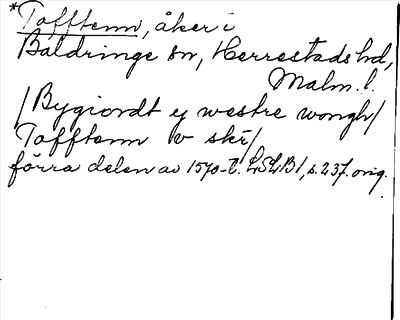 *Tofftenn, åker i
Baldringe sn, Herrestads hd,
Malm. l.
/Bygiordt ey westre wongh/
Tofftenn v skr/
förra delen av 1570-t. LSLB1, s. 237. orig.